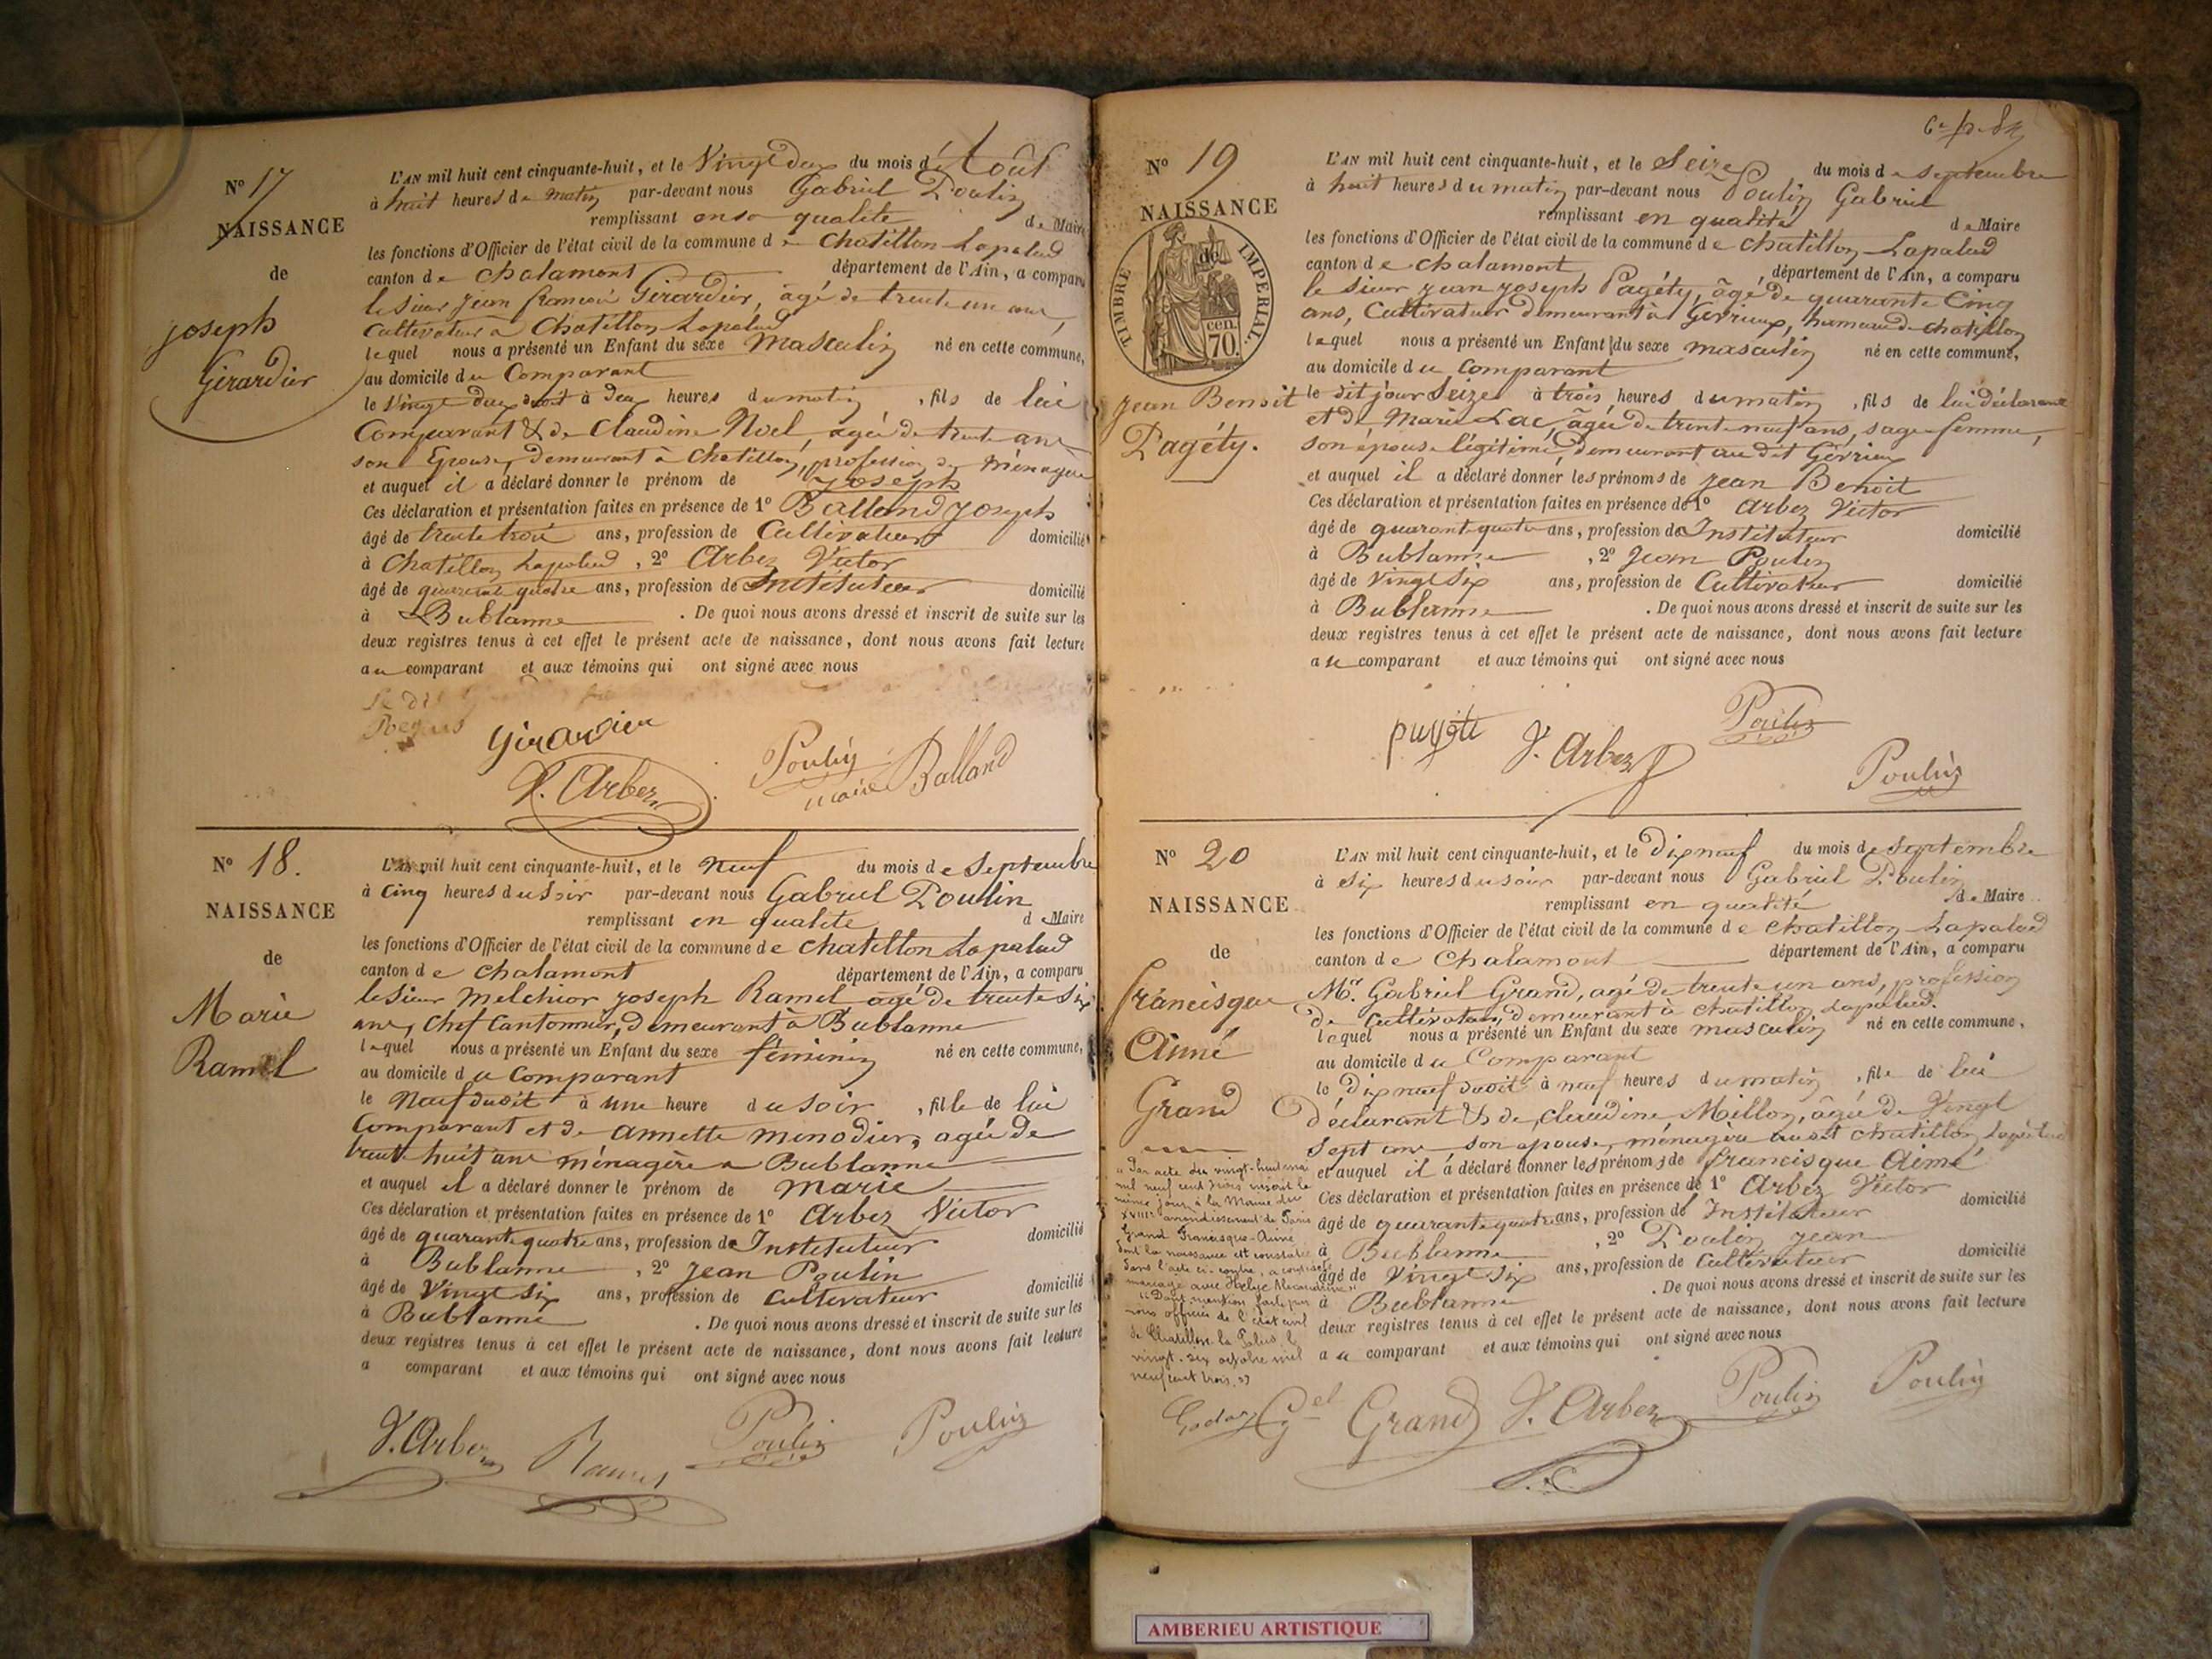 Nº 17
NAISSANCE
de
joseph
Girardier
L'AN mil huit cent cinquante-huit, et le Vingt deux du mois d'Août
à huit heures de matin par-devant nous Gabriel Poulin
remplissant en sa qualité de Maire
les fonctions d'Officier de l'état civil de la commune de Chatillon Lapalud
canton de Chalamont département de l'Ain, a comparu
le sieur jean françois Girardier, âgé de trente un ans,
Cultivateur à Chatillon Lapalud
lequel nous a présenté un Enfant du sexe Masculin né en cette commune,
au domicile du Comparant
le Vingt deux à deux heures du matin, fils de lui
Comparant & de Claudine Noel, agée de trente ans
son Epouse, demeurant à Chatillon, profession de Ménagère
et auquel il a déclaré donner le prénom de joseph
Ces déclaration et présentation faites en présence de 1º Balland joseph
âgé de trente trois ans, profession de Cultivateur domicilié
à Chatillon Lapalud, 2º Arbez Victor
âgé de quarante quatre ans, profession de Instituteur domicilié
à Bublanne. De quoi nous avons dressé et inscrit de suite sur les
deux registres tenus à cet effet le présent acte de naissance, dont nous avons fait lecture
au comparant et aux témoins qui ont signé avec nous
Girardier
V. Arbez
Poulin
maire
Balland
Nº 18.
NAISSANCE
de
Marie
Ramel
L'AN mil huit cent cinquante-huit, et le neuf du mois de Septembre
à cinq heures du soir par-devant nous Gabriel Poulin
remplissant en qualité de Maire
les fonctions d'Officier de l'état civil de la commune de Chatillon Lapalud
canton de Chalamont département de l'Ain, a comparu
le sieur Melchior joseph Ramel agé de trente six
ans, Chef Cantonnier, demeurant à Bublanne
lequel nous a présenté un Enfant du sexe féminin né en cette commune,
au domicile du Comparant
le Neuf dudit à une heure du soir, fille de lui
Comparant et de annette monodier, agée de
trente huit ans ménagère a Bublanne
et auquel il a déclaré donner le prénom de marie
Ces déclaration et présentation faites en présence de 1º Arbez Victor
âgé de quarante quatre ans, profession de Instituteur domicilié
à Bublanne, 2º jean Poulin
âgé de Vingt six ans, profession de Cultivateur domicilié
à Bublanne. De quoi nous avons dressé et inscrit de suite sur les
deux registres tenus à cet effet le présent acte de naissance, dont nous avons fait lecture
a comparant et aux témoins qui ont signé avec nous
V. Arbez
Ramel
Poulin
Poulin
Nº 19
NAISSANCE
de
TIMBRE IMPERIAL
70 cen.
jean Benoit
Pagéty.
L'AN mil huit cent cinquante-huit, et le Seize du mois de septembre
à huit heures du matin par-devant nous Poulin Gabriel
remplissant en qualité de Maire
les fonctions d'Officier de l'état civil de la commune de Chatillon Lapalud
canton de Chalamont, département de l'Ain, a comparu
le sieur jean joseph Pagéty, âgé de quarante Cinq
ans, Cultivateur demeurant à Gévrieux, hameau de chatillon
lequel nous a présenté un Enfant du sexe masculin né en cette commune,
au domicile du Comparant
le dit jour Seize à trois heures du matin, fils de lui déclarant
et de Marie Lac, âgée de trente neuf ans, sage femme,
son épouse légitime, demeurant au dit Gévrieux
et auquel il a déclaré donner les prénoms de jean Benoit
Ces déclaration et présentation faites en présence de 1º Arbez Victor
âgé de quarante quatre ans, profession de Instituteur domicilié
à Bublanne, 2º jean Poulin
âgé de Vingt Six ans, profession de Cultivateur domicilié
à Bublanne. De quoi nous avons dressé et inscrit de suite sur les
deux registres tenus à cet effet le présent acte de naissance, dont nous avons fait lecture
au comparant et aux témoins qui ont signé avec nous
V. Arbez
Poulin
Poulin
Nº 20
NAISSANCE
de
francisque
Aimé
Grand
L'AN mil huit cent cinquante-huit, et le Dix neuf du mois de septembre
à Six heures du soir par-devant nous Gabriel Poulin
remplissant en qualité de Maire
les fonctions d'Officier de l'état civil de la commune de Chatillon Lapalud
canton de Chalamont département de l'Ain, a comparu
Mr. Gabriel Grand, agé de trente un ans, profession
de Cultivateur, demeurant à chatillon Lapalud.
lequel nous a présenté un Enfant du sexe masculin né en cette commune,
au domicile du Comparant
le Dix neuf dudit à neuf heures du matin, fils de lui
Déclarant & de Claudine Millon, âgée de Vingt
Sept ans son epouse, ménagère audit chatillon Lapalud
et auquel il a déclaré donner les prénoms de francisque Aimé
Ces déclaration et présentation faites en présence de 1º Arbez Victor
âgé de quarante quatre ans, profession de Instituteur domicilié
à Bublanne, 2º Poulin jean
âgé de Vingt Six ans, profession de Cultivateur domicilié
à Bublanne. De quoi nous avons dressé et inscrit de suite sur les
deux registres tenus à cet effet le présent acte de naissance, dont nous avons fait lecture
au comparant et aux témoins qui ont signé avec nous
"Par acte du vingt-huit mai
mil neuf cent trois inscrit le
même jour à la Mairie du
XVIIIe arrondissement de Paris
Grand Francisque-Aimé
dont la naissance est constatée
dans l'acte ci-contre, a contracté
mariage avec Alexandrine"
"Dont mention faite par
nous officier de l'état civil
de Chatillon-la-Palud, le
vingt-six octobre mil
neuf cent trois."
Gel Grand
V. Arbez
Poulin
Poulin
AMBERIEU ARTISTIQUE